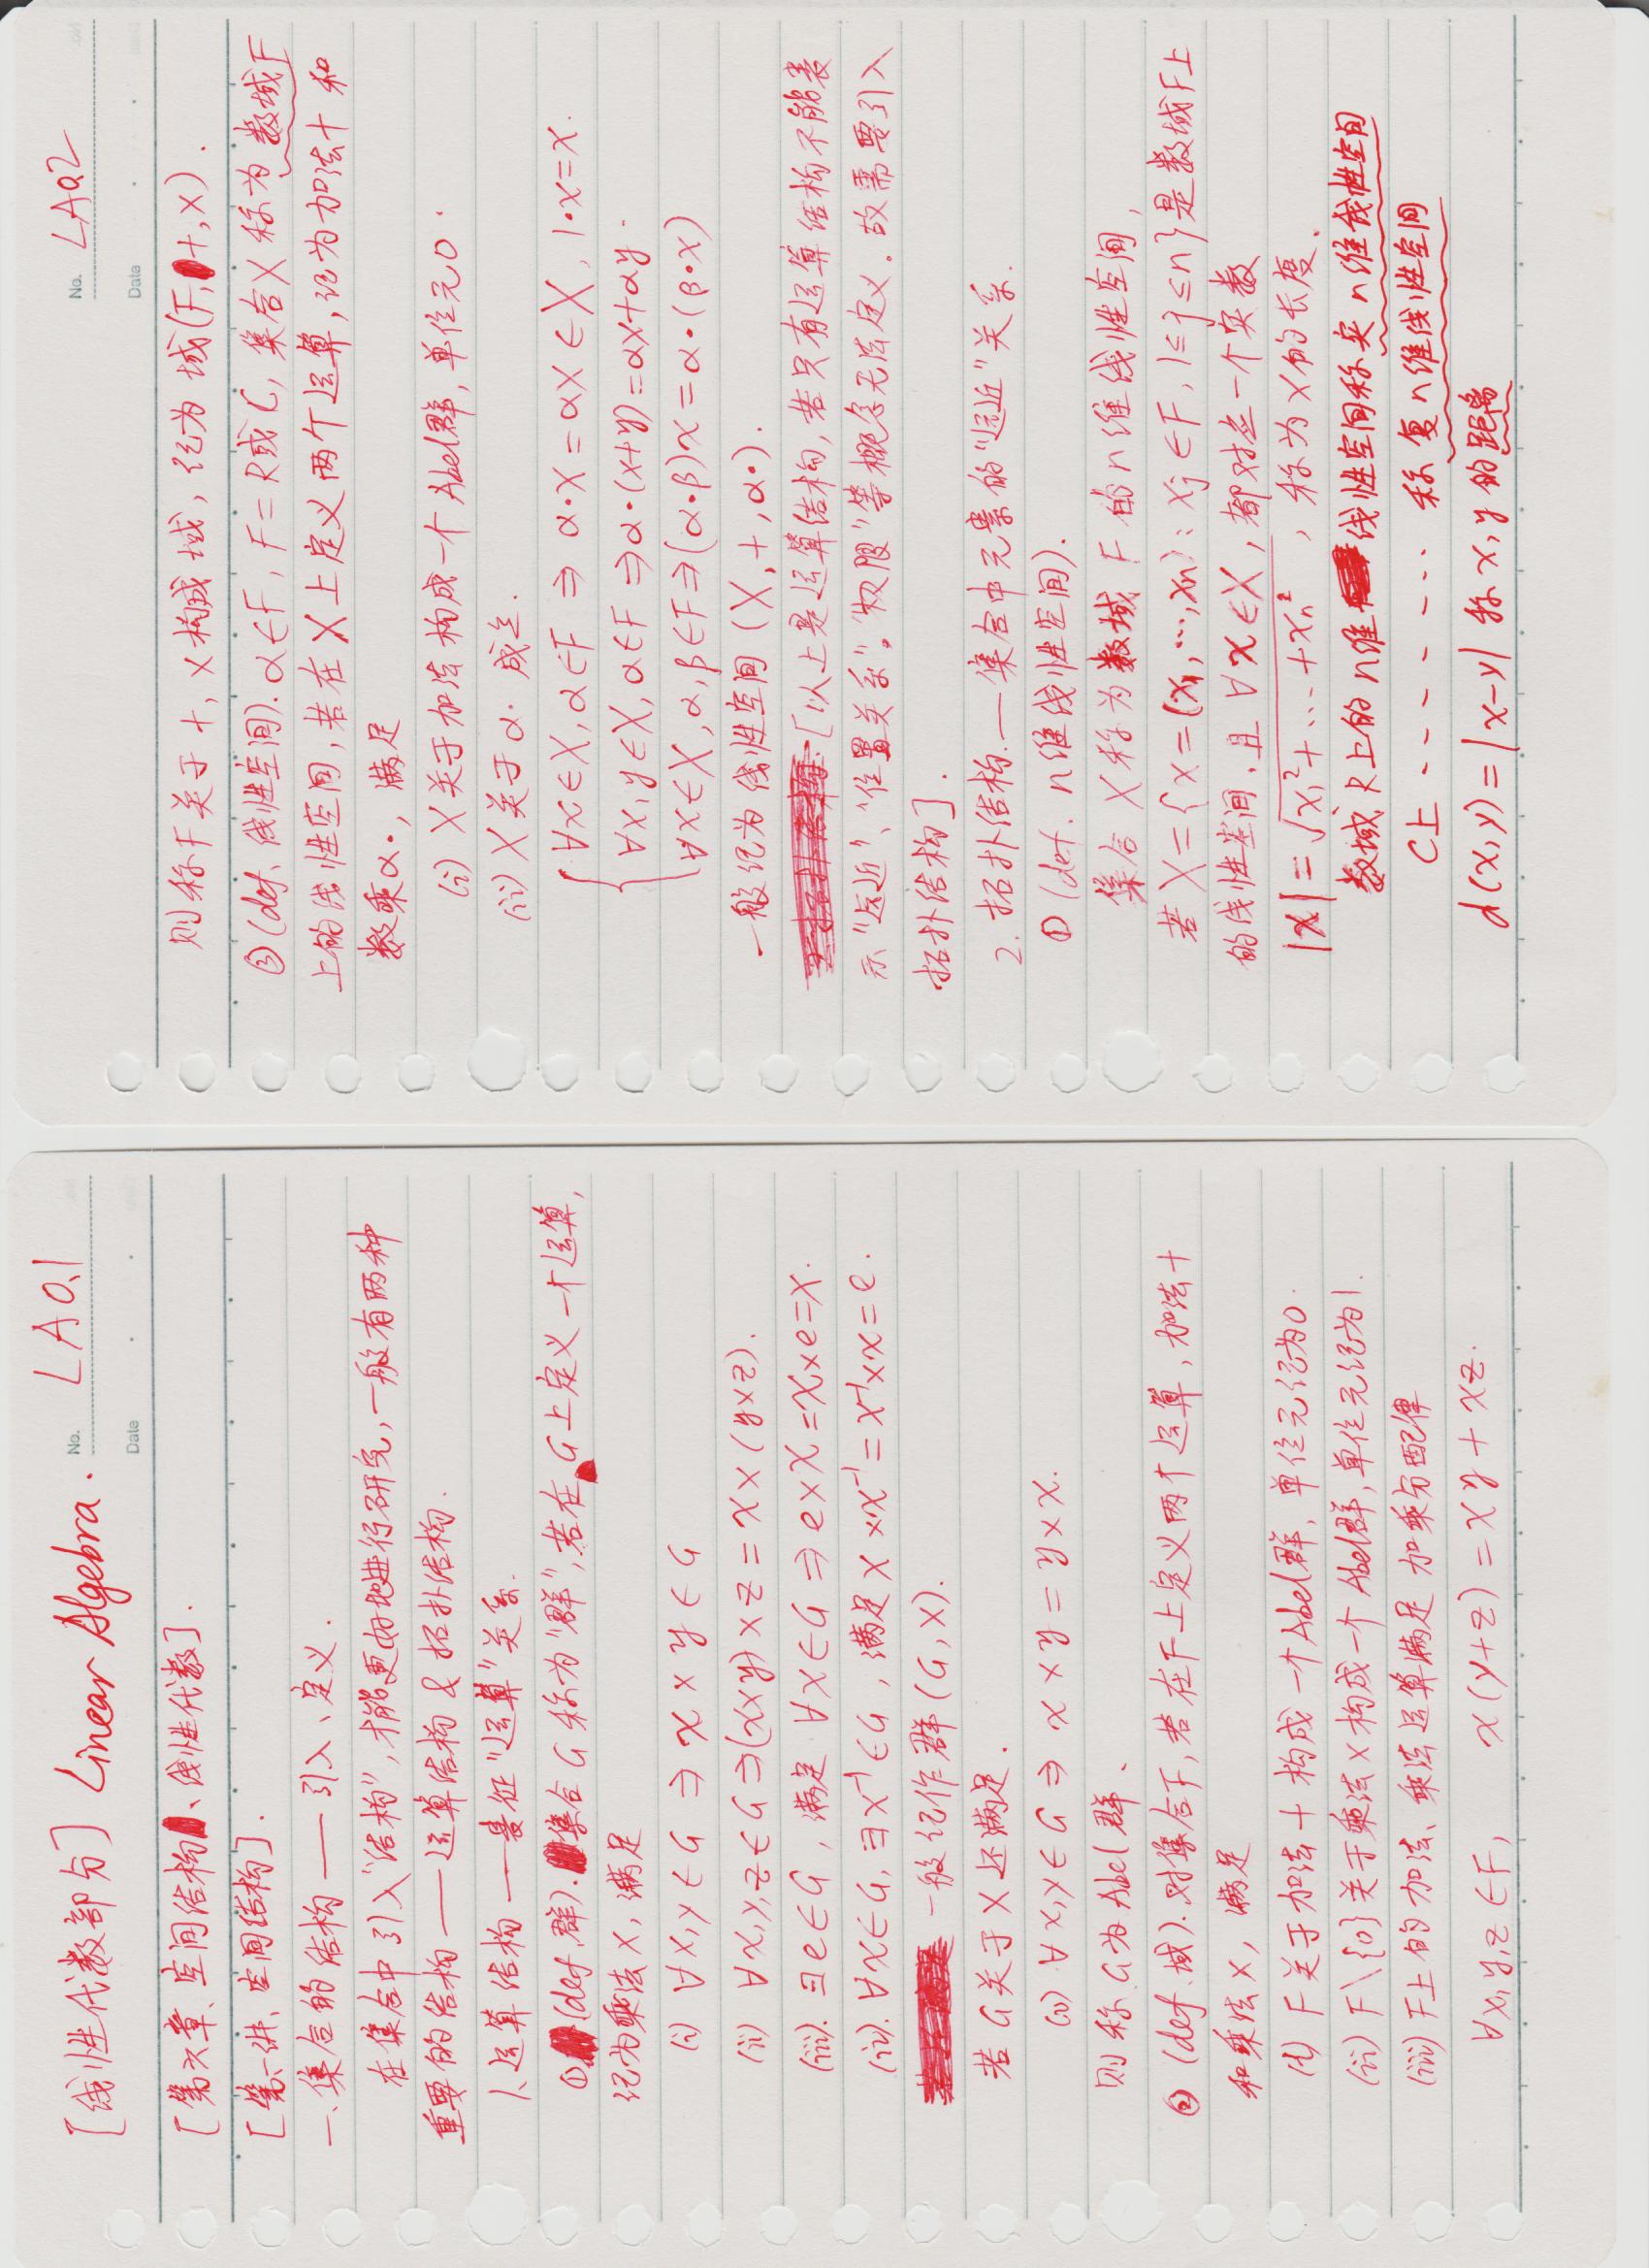 [线性代数部分] Linear Algebra.
No. LA0.1
Date
[第六章、空间结构、线性代数].
[第一讲、空间结构].
一、集合的结构 —— 引入、定义.
在集合中引入"结构", 才能更好地进行研究, 一般有两种
重要的结构 —— 运算结构 & 拓扑结构.
1、运算结构 —— 表征"运算"关系.
① (def. 群). 集合 G 称为"群", 若在 G 上定义一个运算,
记为乘法 ×, 满足
(i) ∀x,y∈G ⇒ x × y ∈ G
(ii) ∀x,y,z∈G ⇒ (x×y)×z = x×(y×z).
(iii). ∃e∈G, 满足 ∀x∈G ⇒ e×x = x×e = x.
(iv). ∀x∈G, ∃x⁻¹∈G, 满足 x×x⁻¹ = x⁻¹×x = e.
一般记作群 (G, ×).
若 G 关于 × 还满足.
(v) ∀x,y∈G ⇒ x × y = y × x.
则称 G 为 Abel 群.
② (def. 域). 对集合 F, 若在 F 上定义两个运算, 加法 +
和乘法 ×, 满足
(i) F 关于加法 + 构成一个 Abel 群, 单位元记为 0.
(ii) F\{0} 关于乘法 × 构成一个 Abel 群, 单位元记为 1.
(iii) F 上的加法、乘法运算满足加乘分配律
∀x,y,z∈F, x(y+z) = xy + xz.
No. LA0.2
Date
则称 F 关于 +, × 构成域, 记为 域(F, +, ×).
③ (def. 线性空间). α∈F, F = R 或 C, 集合 X 称为 数域 F
上的线性空间, 若在 X 上定义两个运算, 记为加法 + 和
数乘 α·, 满足
(i) X 关于加法构成一个 Abel 群, 单位元 0.
(ii) X 关于 α· 成立.
∀x∈X, α∈F ⇒ α·x = αx ∈ X, 1·x = x.
∀x,y∈X, α∈F ⇒ α·(x+y) = αx+αy.
∀x∈X, α,β∈F ⇒ (α·β)x = α·(β·x)
一般记为线性空间 (X, +, α·).
[以上是运算结构, 若只有运算结构不能表
示"远近"、"位置关系"。"极限"等概念无法定义. 故需要引入
拓扑结构].
2. 拓扑结构. — 集合中元素的"远近"关系.
① (def. n维线性空间).
集合 X 称为数域 F 的 n 维线性空间,
若 X = {x = (x₁, …, xₙ) : xⱼ∈F, 1≤j≤n} 是数域 F 上
的线性空间, 且 ∀x∈X, 都对应一个实数
|x| = √(x₁² + … + xₙ²), 称为 x 的长度.
数域 R 上的 n 维线性空间称实 n 维线性空间
C 上 - - - - - - … 称复 n 维线性空间
d(x,y) = |x-y| 称 x, y 的距离